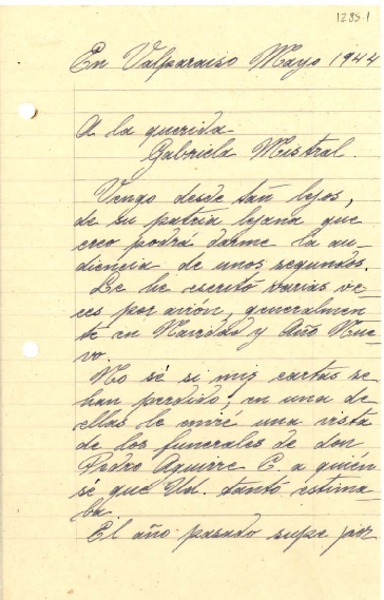 1285-1
En Valparaiso Mayo 1944
A la querida
Gabriela Mistral.
Vengo desde tan lejos,
de su patria lejana que
creo podrá darme la au-
diencia de unos segundos.
Le he escrito varias ve-
ces por avión, generalmen-
te en Navidad y Año Nue-
vo.
No sé si mis cartas se
han perdido; en una de
ellas le envié una vista
de los funerales de don
Pedro Aguirre C. a quién
sé que Ud. tanto estima-
ba.
El año pasado supe por